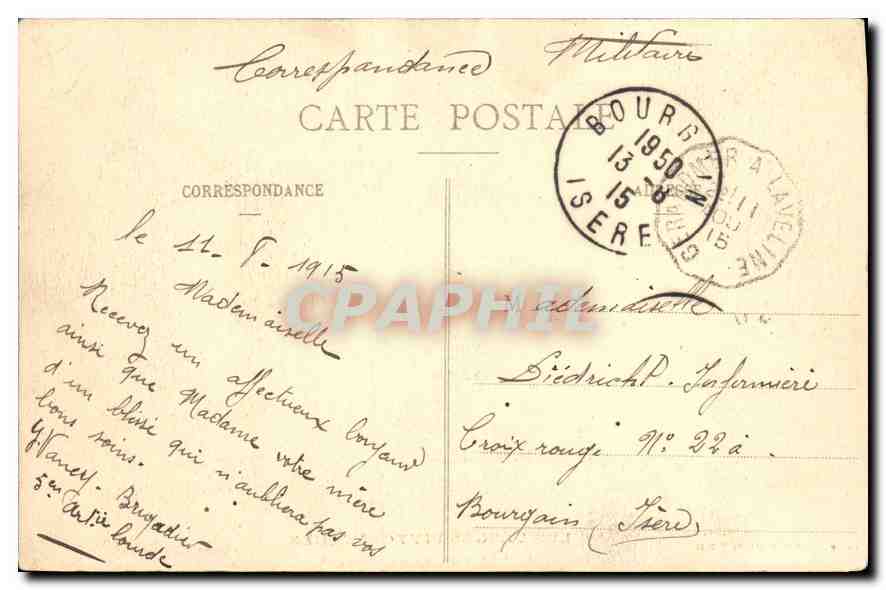 Correspondance Militaire
CARTE POSTALE
CORRESPONDANCE
ADRESSE
BOURGOIN
1950
13-8
15
ISERE
GERARDMER A LAVELINE
11
15
CPAPHIL
le 11-8-1915
Mademoiselle
Recevez un affectueux bonjour
ainsi que Madame votre mère
d'un blissé qui n'aubliera pas vos
bons soins.
Brigadier
5eu Artie lourde
Mademoiselle
Diédricht. Infirmière
Croix rouge No. 22 à
Bourgoin (Isère)